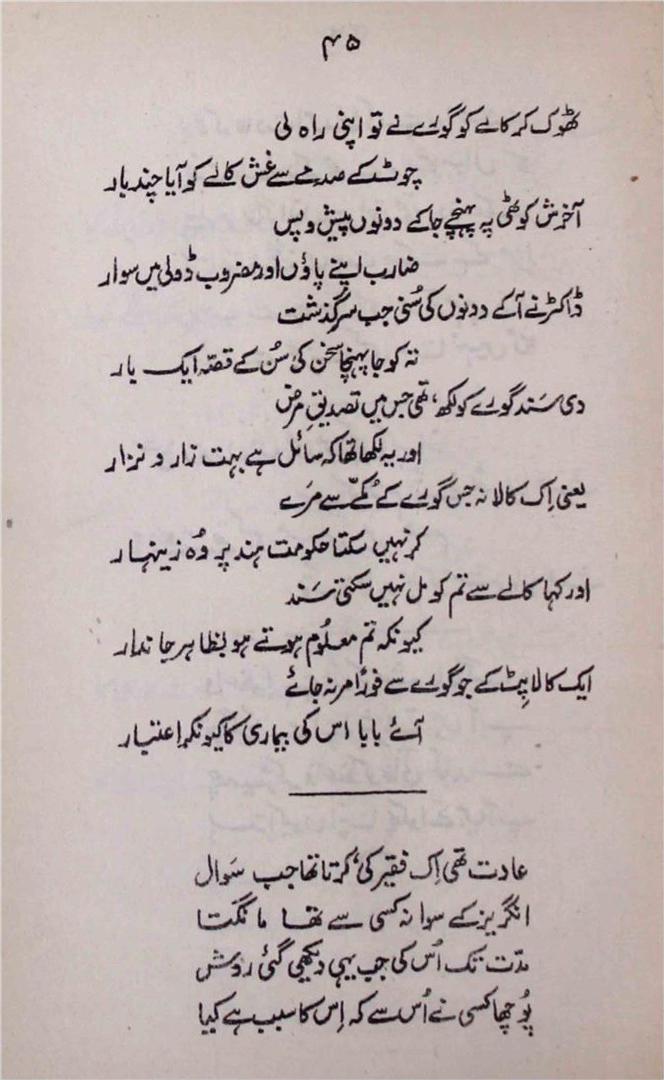 ۴۵
ٹھوک کر کالے کو گورے نے تو اپنی راہ لی
چوٹ کے صدمے سے غش کالے کو آیا چند بار
آخرش کوٹھی پہ پہنچے جا کے دونوں پیش و پس
ضارب اپنے پاؤں اور مضروب ڈولی میں سوار
ڈاکٹر نے آ کے دونوں کی سُنی جب سرگذشت
تہ کو جا پہنچا سخن کی سُن کے قصّہ ایک بار
دی سَند گورے کو لکھ، تھی جس میں تصدیقِ مرض
اور یہ لکھا تھا کہ سائل ہے بہت زار و نزار
یعنی اِک کالا نہ جس گورے کے مُکّے سے مَرے
کر نہیں سکتا حکومت ہند پر وُہ زینہار
اور کہا کالے سے تم کو مل نہیں سکتی سَند
کیونکہ تم معلُوم ہوتے ہو بظاہر جاندار
ایک کالا پِٹ کے جو گورے سے فورًا مر نہ جائے
آئے بابا اس کی بیماری کا کیونکر اعتبار
عادت تھی اِک فقیر کی، کرتا تھا جب سَوال
انگریز کے سوا نہ کسی سے تھا مانگتا
مدّت تک اُس کی جب یہی دیکھی گئی روِش
پُوچھا کسی نے اُس سے کہ اِس کا سبب ہے کیا